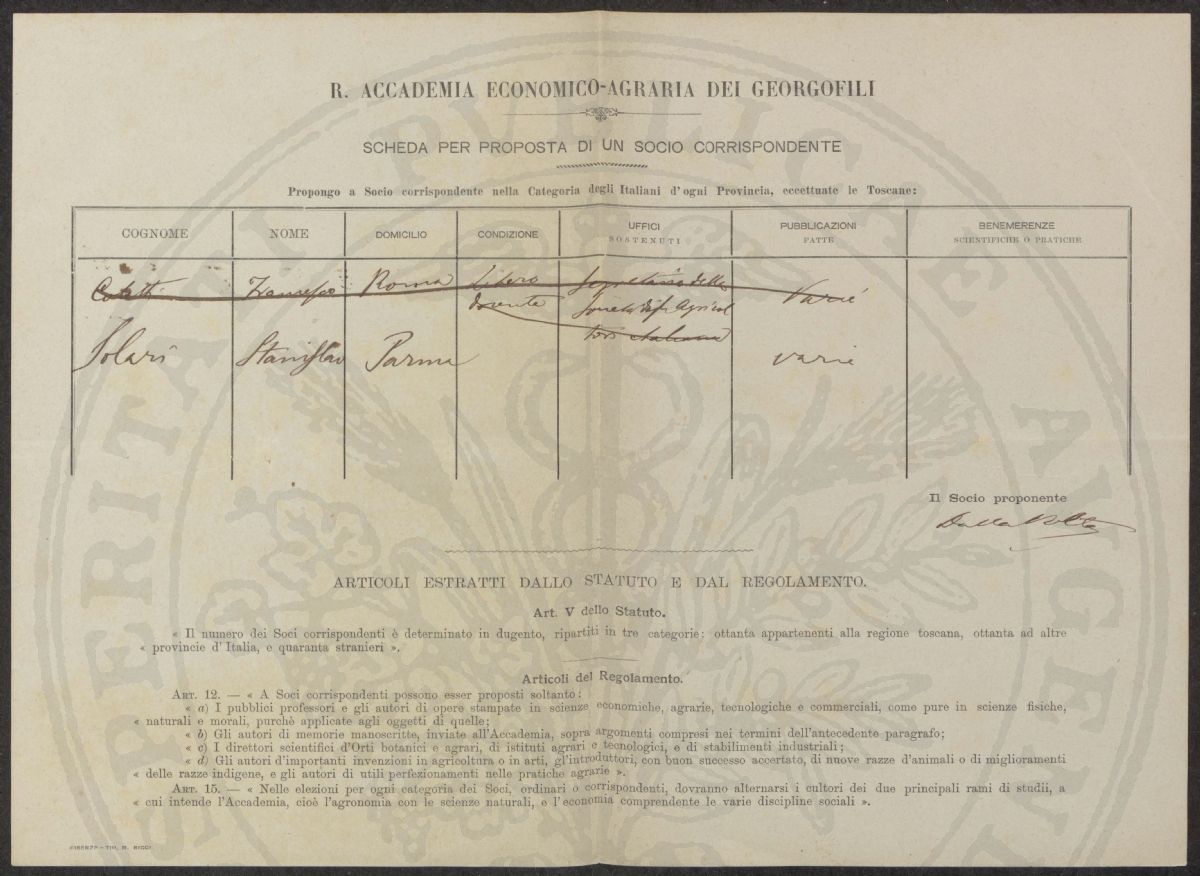 R. ACCADEMIA ECONOMICO-AGRARIA DEI GEORGOFILI
SCHEDA PER PROPOSTA DI UN SOCIO CORRISPONDENTE
Propongo a Socio corrispondente nella Categoria degli Italiani d'ogni Provincia, eccettuate le Toscane:
COGNOME NOME DOMICILIO CONDIZIONE UFFICI SOSTENUTI PUBBLICAZIONI FATTE BENEMERENZE SCIENTIFICHE O PRATICHE
Francesco Roma Libero docente Segretario della Società degli Agricoltori italiani Varie
Solari Stanislao Parma varie
Il Socio proponente
Dalla Volta
ARTICOLI ESTRATTI DALLO STATUTO E DAL REGOLAMENTO.
Art. V dello Statuto.
« Il numero dei Soci corrispondenti è determinato in dugento, ripartiti in tre categorie: ottanta appartenenti alla regione toscana, ottanta ad altre
« provincie d'Italia, e quaranta stranieri ».
Articoli del Regolamento.
ART. 12. — « A Soci corrispondenti possono esser proposti soltanto:
« a) I pubblici professori e gli autori di opere stampate in scienze economiche, agrarie, tecnologiche e commerciali, come pure in scienze fisiche,
« naturali e morali, purchè applicate agli oggetti di quelle;
« b) Gli autori di memorie manoscritte, inviate all'Accademia, sopra argomenti compresi nei termini dell'antecedente paragrafo;
« c) I direttori scientifici d'Orti botanici e agrari, di istituti agrari e tecnologici, e di stabilimenti industriali;
« d) Gli autori d'importanti invenzioni in agricoltura o in arti, gl'introduttori, con buon successo accertato, di nuove razze d'animali o di miglioramenti
« delle razze indigene, e gli autori di utili perfezionamenti nelle pratiche agrarie ».
ART. 15. — « Nelle elezioni per ogni categoria dei Soci, ordinari o corrispondenti, dovranno alternarsi i cultori dei due principali rami di studii, a
« cui intende l'Accademia, cioè l'agronomia con le scienze naturali, e l'economia comprendente le varie discipline sociali ».
FIRENZE - TIP. M. RICCI